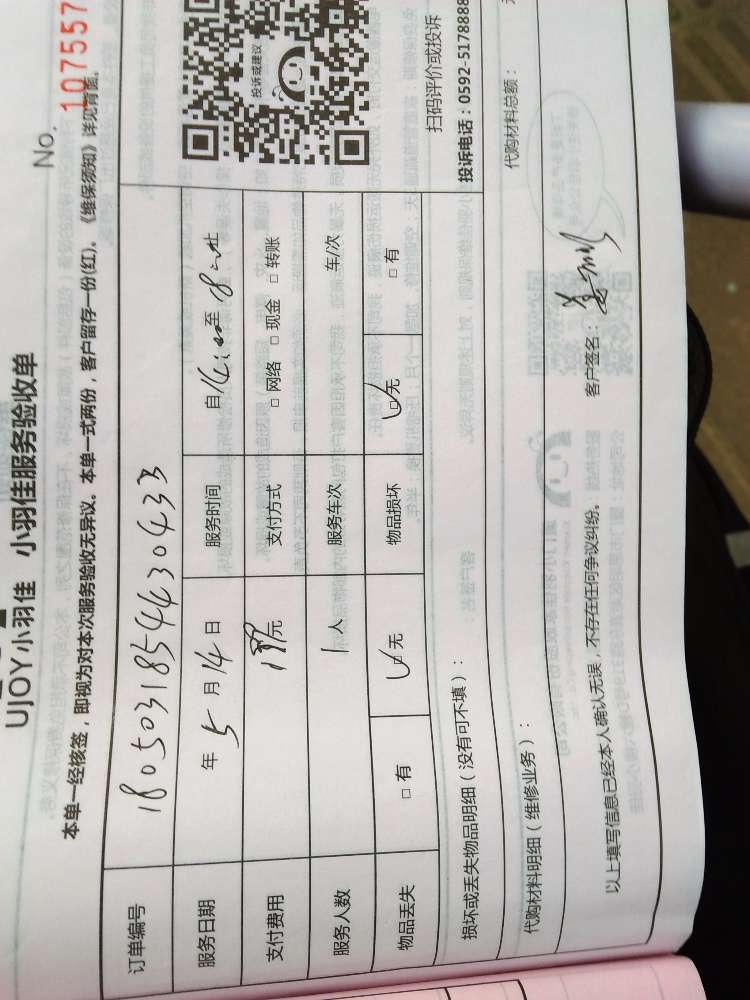 No. 107557
UJOY小羽佳 小羽佳服务验收单
本单一经核签,即视为对本次服务验收无异议。本单一式两份,客户留存一份(红)。《维保须知》详见背面。
订单编号 180503185443 0433
服务日期 年 5 月 14 日 服务时间 自 至
支付费用 元 支付方式 □ 网络 □ 现金 □ 转账
服务人数 1 人 服务车次 车/次
物品丢失 □ 有 □ 无 物品损坏 □ 无 □ 有
投诉或建议
扫码评价或投诉
投诉电话:0592-5178888
损坏或丢失物品明细(没有可不填):
代购材料明细(维修业务): 代购材料总额:
以上填写信息已经本人确认无误,不存在任何争议纠纷。 客户签名: